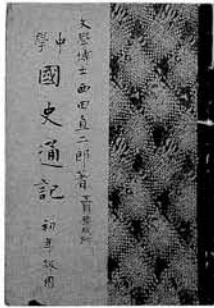 文學博士 西田直二郎 著
中學
國史通記 初年級用